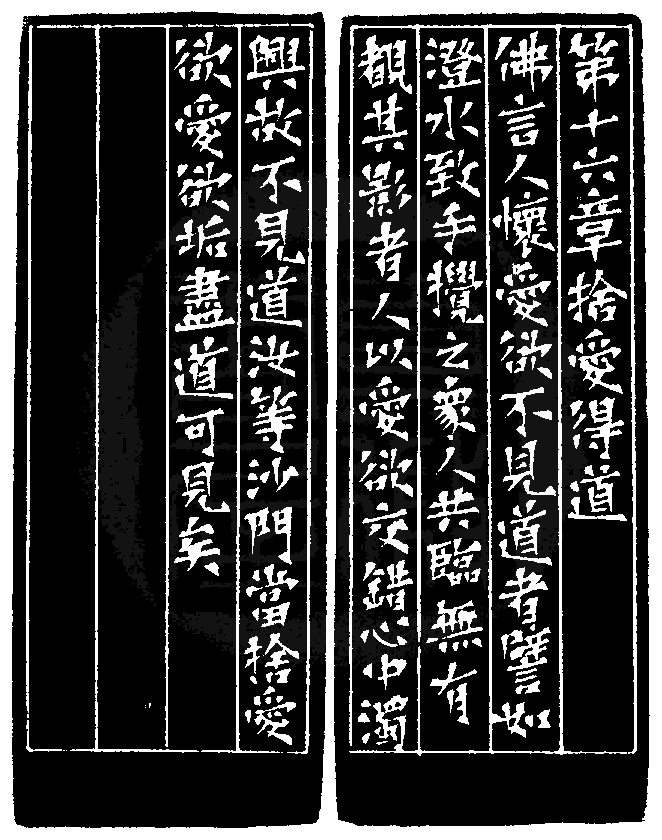 第十六章捨愛得道
佛言人懷愛欲不見道者譬如
澄水致手攪之眾人共臨無有
覩其影者人以愛欲交錯心中濁
興故不見道汝等沙門當捨愛
欲愛欲垢盡道可見矣